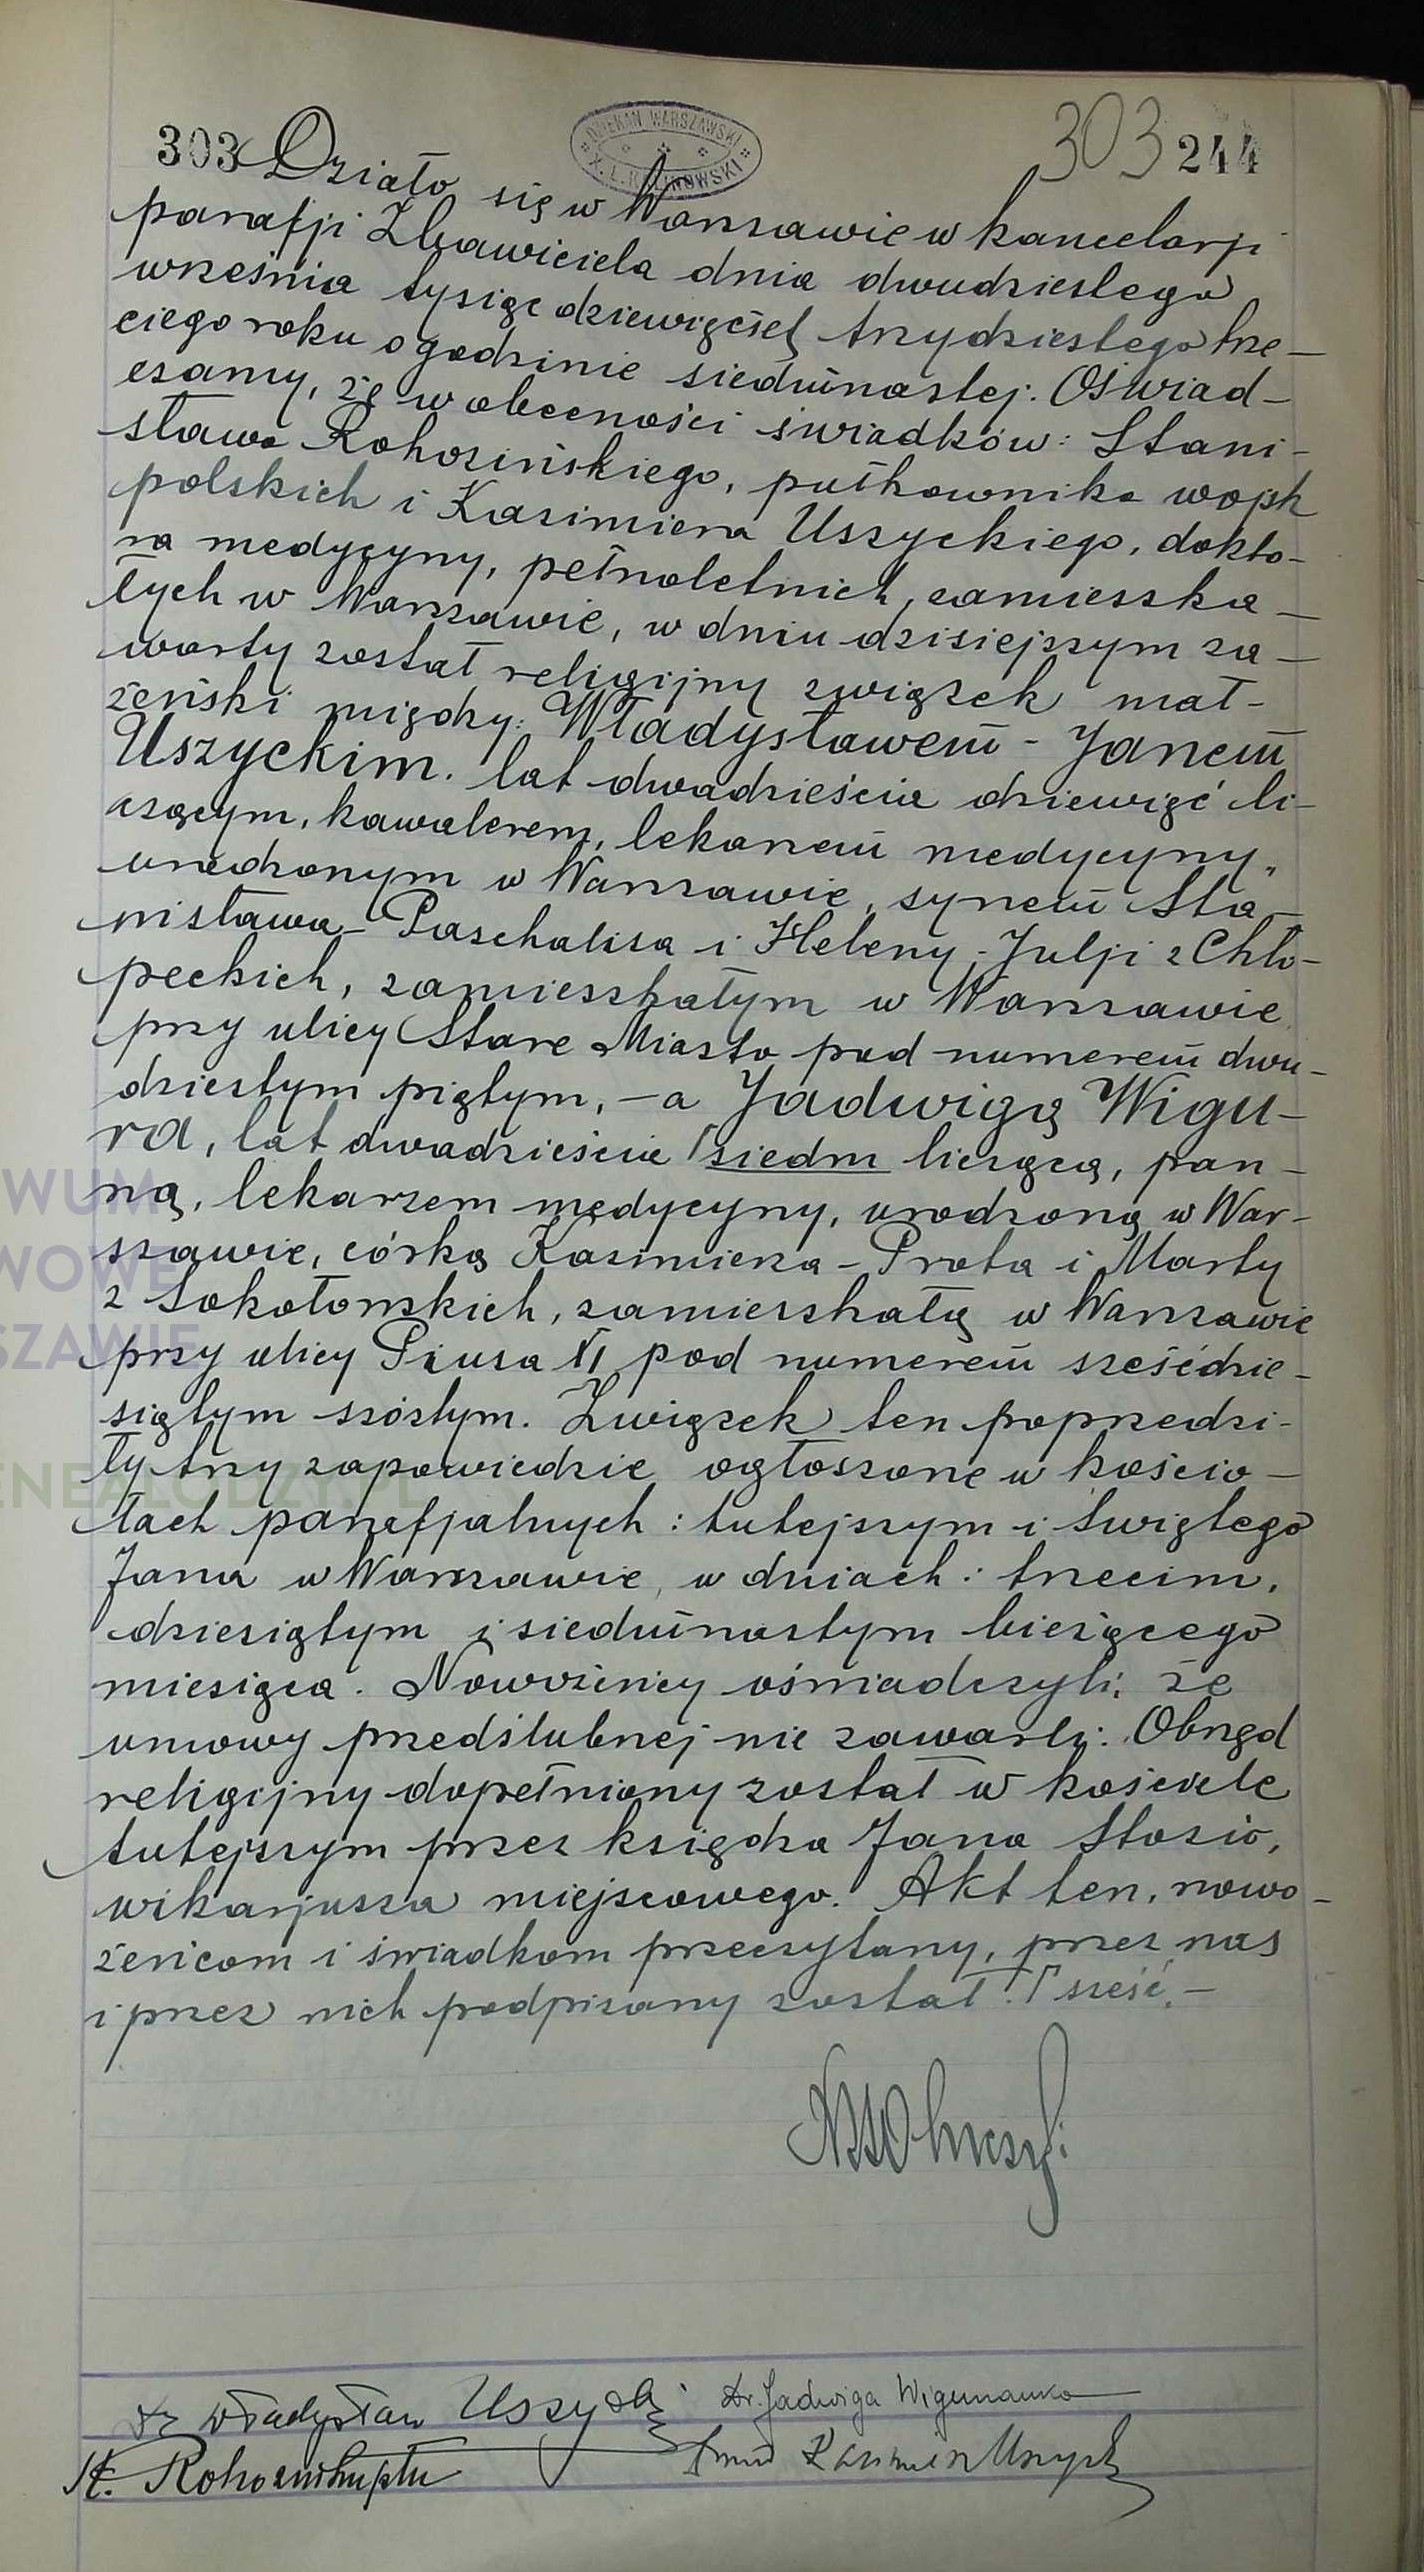 303 Działo się w Warszawie w kancelarji
303 244
DZIEKAN WARSZAWSKI
X. L. KALINOWSKI
parafji Zbawiciela dnia dwudziestego
września tysiąc dziewięćset trzydziestego trze-
ciego roku o godzinie siedmnastej. Oświad-
czamy, że w obecności świadków: Stani-
sława Rohozińskiego, pułkownika wojsk
polskich i Kazimierza Uszyckiego, dokto-
ra medycyny, pełnoletnich, zamieszka-
łych w Warszawie, w dniu dzisiejszym za-
warty został religijny związek mał-
żeński między: Władysławem-Janem
Uszyckim. lat dwadzieścia dziewięć li-
czącym, kawalerem, lekarzem medycyny,
urodzonym w Warszawie, synem Sta-
nisława-Paschalisa i Heleny-Julji z Chło-
peckich, zamieszkałym w Warszawie
przy ulicy Stare Miasto pod numerem dwu-
dziestym piątym, - a Jadwigą Wigu-
rą, lat dwadzieścia siedm liczącą, pan-
ną, lekarzem medycyny, urodzoną w War-
szawie, córką Kazimierza-Prota i Marty
z Sokołowskich, zamieszkałą w Warszawie
przy ulicy Piusa XI pod numerem sześćdzie-
siątym szóstym. Związek ten poprzedzi-
ły trzy zapowiedzie ogłoszone w kościo-
łach parafjalnych: tutejszym i świętego
Jana w Warszawie, w dniach: trzecim,
dziesiątym i siedmnastym bieżącego
miesiąca. Nowożeńcy oświadczyli, że
umowy przedślubnej nie zawarli. Obrzęd
religijny dopełniony został w kościele
tutejszym przez księdza Jana Stosio,
wikarjusza miejscowego. Akt ten, nowo-
żeńcom i świadkom przeczytany, przez nas
i przez nich podpisany został. sześć. -
Dr Władysław Uszycki Dr. Jadwiga Wigurzanka
St. Rohoziński płk Kazimierz Uszycki
WUM
WOWE
SZAWIE
GENEALODZY.PL